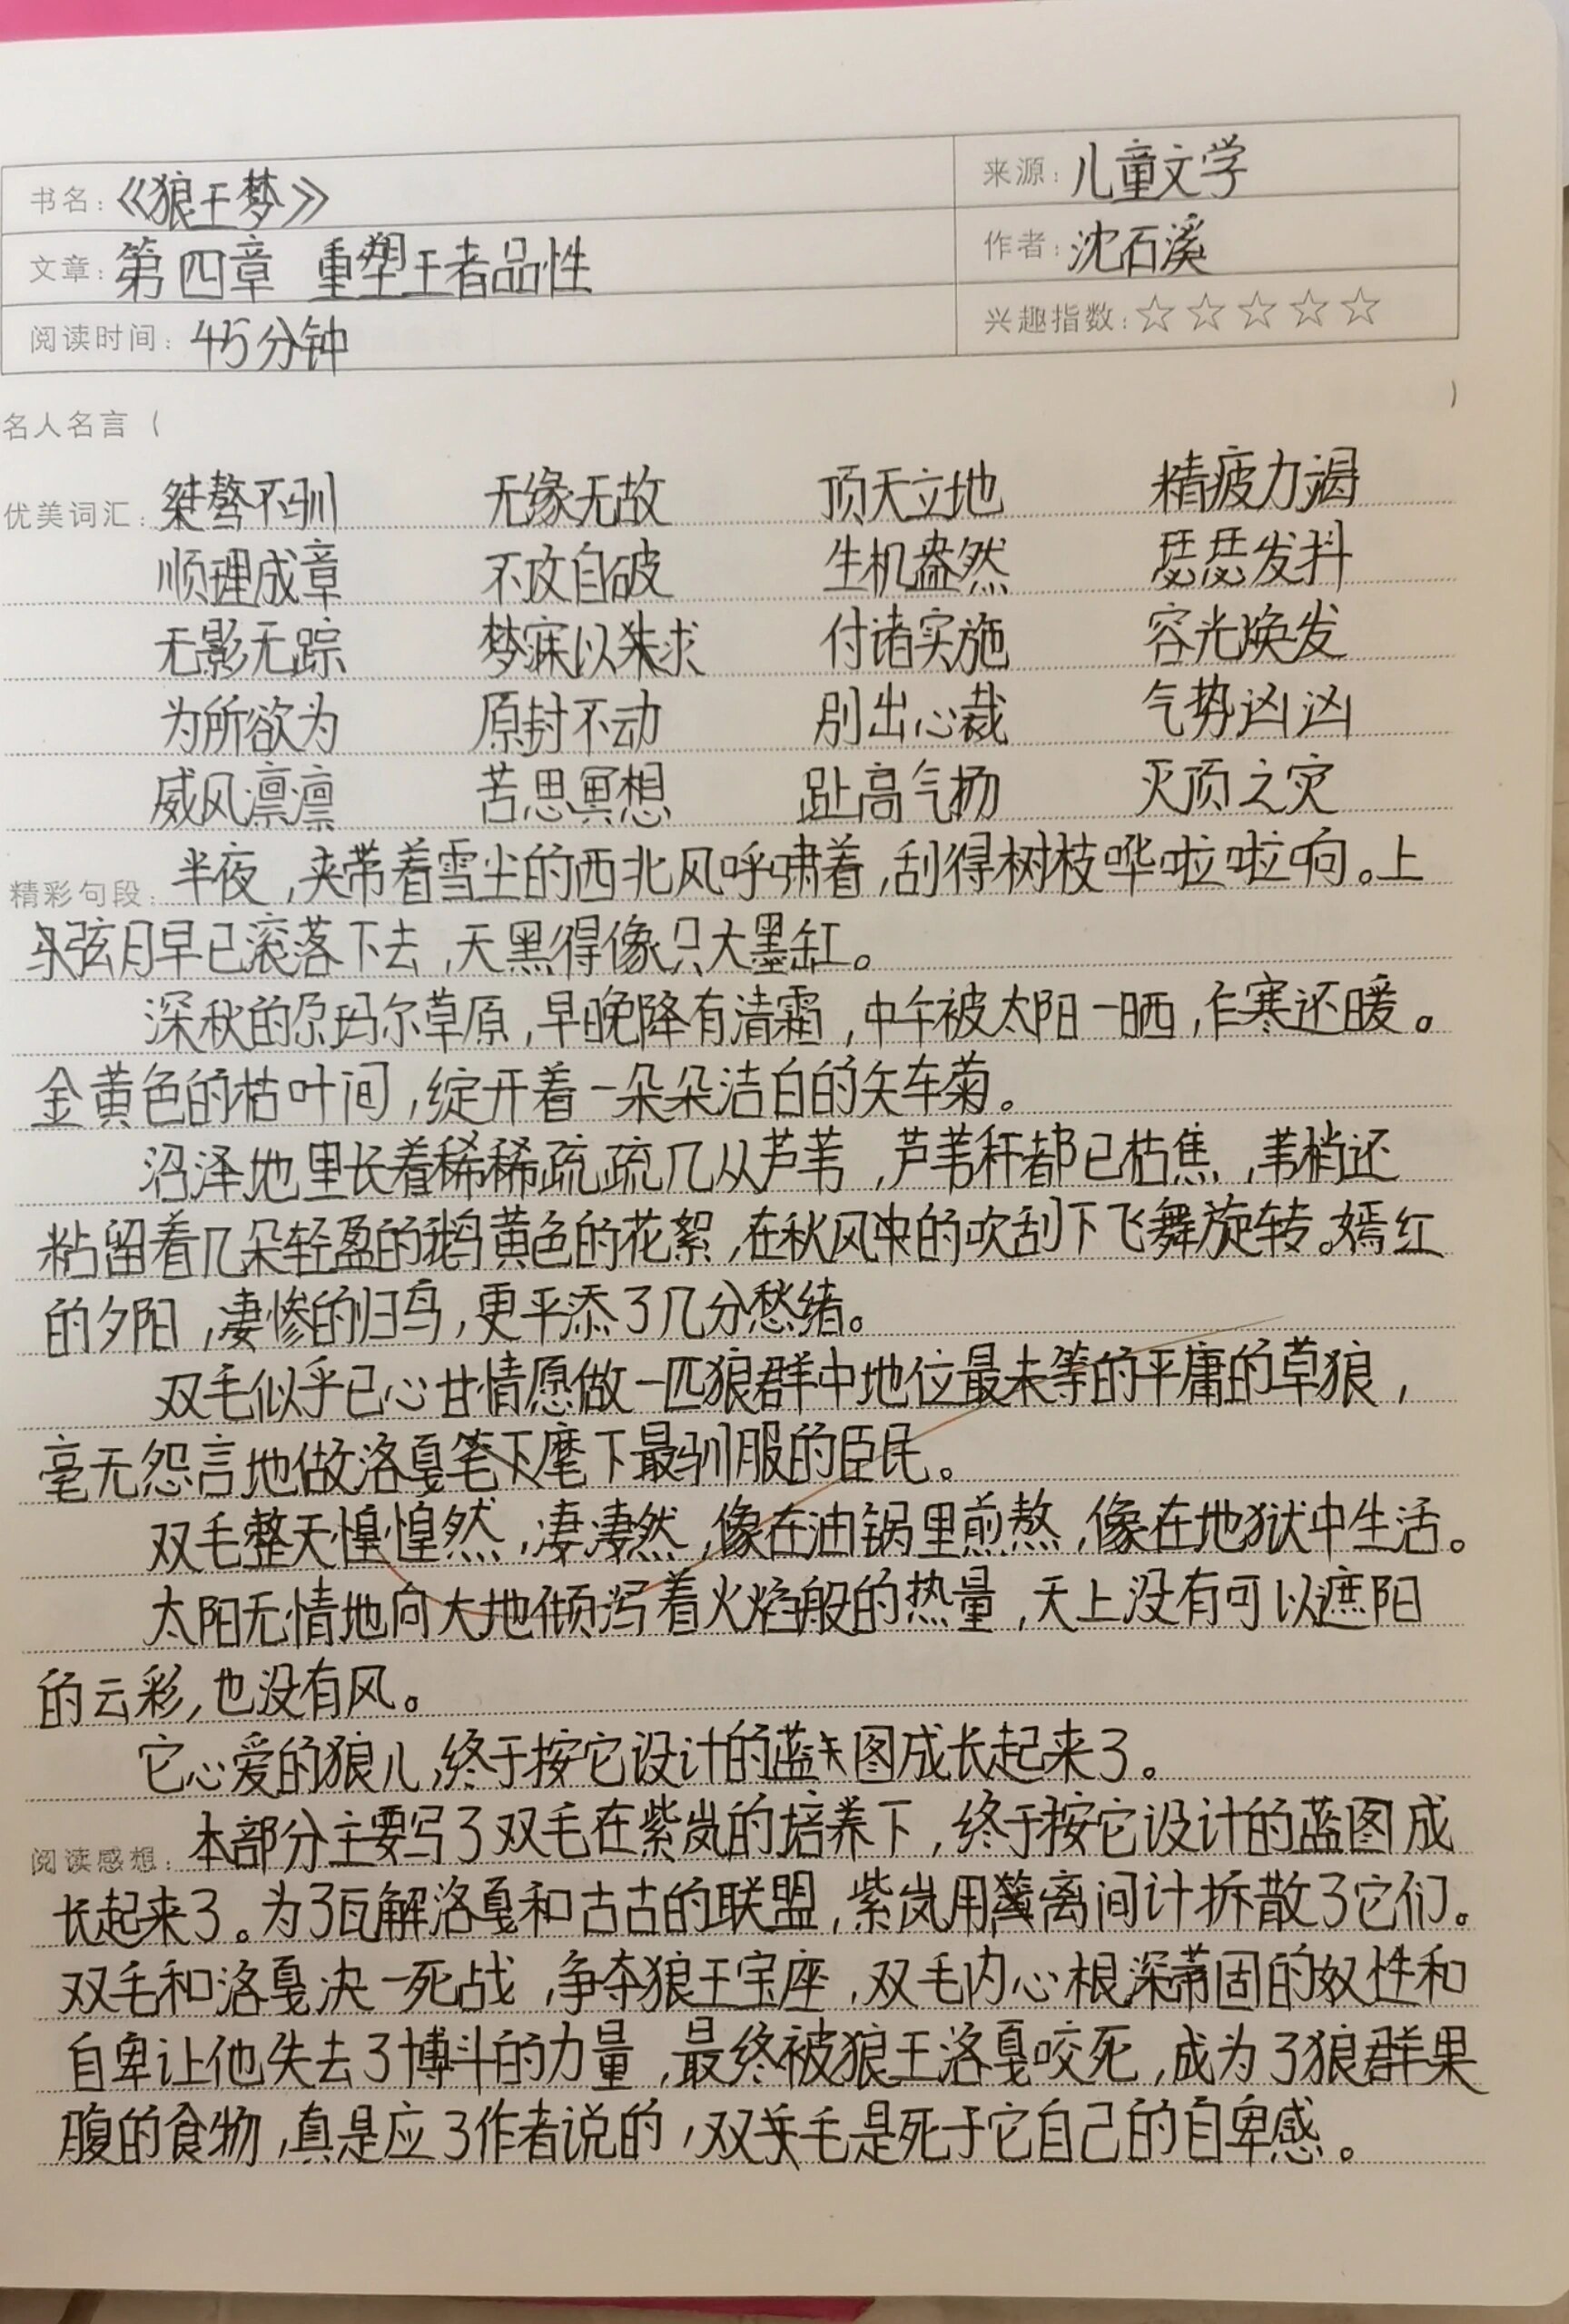 书名：《狼王梦》 来源：儿童文学
文章：第四章 重塑王者品性 作者：沈石溪
阅读时间：45分钟 兴趣指数：☆☆☆☆☆
名人名言（ ）
优美词汇：桀骜不驯 无缘无故 顶天立地 精疲力竭
顺理成章 不攻自破 生机盎然 瑟瑟发抖
无影无踪 梦寐以求 付诸实施 容光焕发
为所欲为 原封不动 别出心裁 气势汹汹
威风凛凛 苦思冥想 趾高气扬 灭顶之灾
精彩句段：半夜，夹带着雪尘的西北风呼啸着，刮得树枝哗啦啦响。上
弦月早已滚落下去，天黑得像只大墨缸。
深秋的尕玛尔草原，早晚降有清霜，中午被太阳一晒，乍寒还暖。
金黄色的枯叶间，绽开着一朵朵洁白的矢车菊。
沼泽地里长着稀稀疏疏几从芦苇，芦苇秆都已枯焦，苇梢还
粘留着几朵轻盈的鹅黄色的花絮，在秋风中的吹刮下飞舞旋转。嫣红
的夕阳，凄惨的归鸟，更平添了几分愁绪。
双毛似乎已心甘情愿做一匹狼群中地位最末等的平庸的草狼，
毫无怨言地做洛戛麾下最驯服的臣民。
双毛整天惶惶然，凄凄然，像在油锅里煎熬，像在地狱中生活。
太阳无情地向大地倾泻着火焰般的热量，天上没有可以遮阳
的云彩，也没有风。
它心爱的狼儿，终于按它设计的蓝图成长起来了。
阅读感想：本部分主要写了双毛在紫岚的培养下，终于按它设计的蓝图成
长起来了。为了瓦解洛戛和古古的联盟，紫岚用离间计拆散了它们。
双毛和洛戛决一死战，争夺狼王宝座，双毛内心根深蒂固的奴性和
自卑让他失去了博斗的力量，最终被狼王洛戛咬死，成为了狼群果
腹的食物，真是应了作者说的，双毛是死于它自己的自卑感。